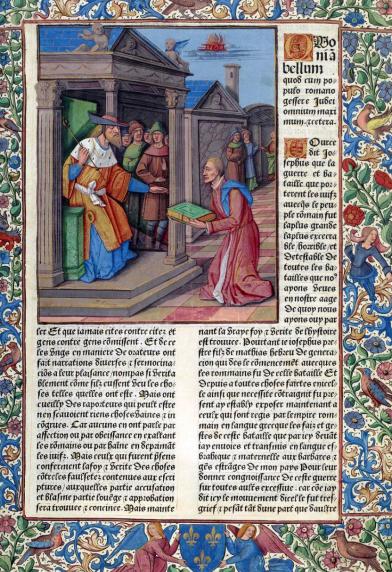 Quoniā
bellum
quod cum po⸗
pulo romano
gessere Iudei
omnium maxi
mum. et cetera.
Pource
dit Io⸗
sephus que la
guerre et ba⸗
taille que por⸗
terent les iuifz
auecqs le peu⸗
ple rōmain fut
la plus grande
la plus execra
ble horrible et
detestable de
toutes les ba⸗
tailles que no⁹
ayons veues
en nostre aage
de quoy nous
ayons ouy par
ler Et que iamais cites contre cites et
gens contre gens cōmissent. Et de ce
les vngs en maniere de orateurs ont
fait narations diuerses z sermocina⸗
cions a leur plaisance non pas si verita
blement cōme silz eussent veu les cho⸗
ses telles quelles ont este. Mais ont
cueilly des rapoteurs qui peult estre
nen scauoient riens choses vaines z in
cōgrues. Car aucuns en ont parle par
affection ou par obeissance en exaltant
les rōmains ou par haine en deprimāt
les iuifz. Mais ceulx qui furent plens
conferment la foy z verite des choses
cōtre les faulsetez contenues aux escri
ptures ausquelles partie accusation
et blasme partie louēge z approbation
sera trouuee z concince. Mais mainte
nant la vraye foy z verite de lhystoire
est trouuee. Pourtant ie iosephus pre
stre filz de mathias hebreu de genera
cion qui des le cōmencemēt auecques
les rommains fu de celle bataille Et
Depuis a toutes choses faictes en icel⸗
le ainsi que necessite cōtraignit fu pre
sent ay estably exposer maintenant a
ceulx qui sont regis par lempire rom⸗
main en langue grecque les faiz et ge⸗
stes de ceste bataille que par icy deuāt
iay enuoiez et transmis en langue ef⸗
braique z maternelle aux barbares z
gēs estrāges de mon pays Pour leur
donnee congnoissance de ceste guerre
sur toutes aultres excessiue. car cōe iay
dit icy le mouuement dicelle fut tres⸗
grief z pesāt tāt dune part que daultre